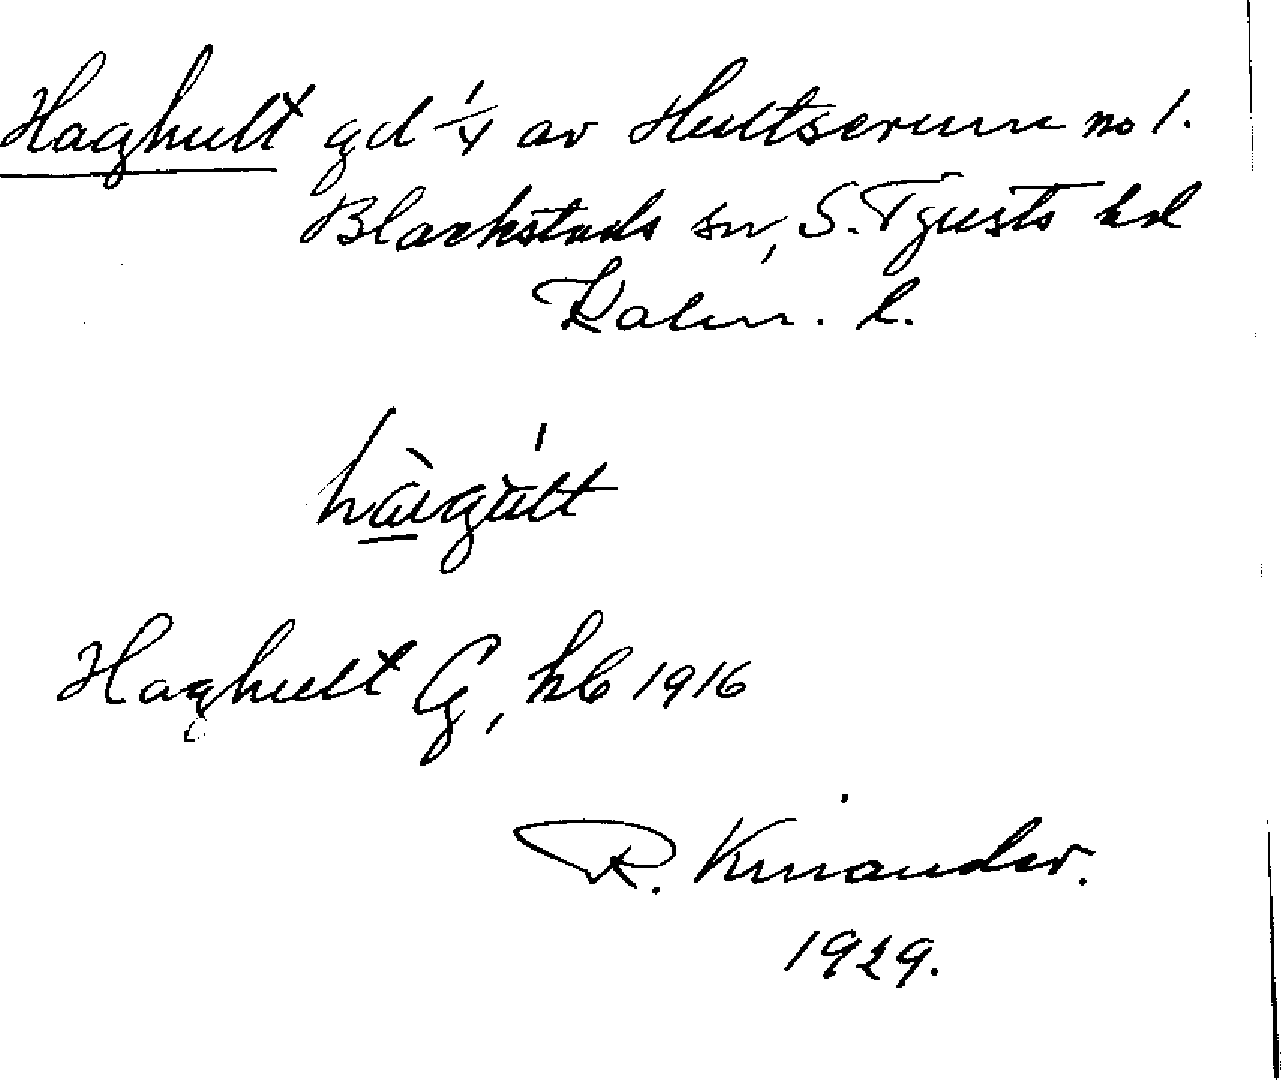 Haghult gd 1/4 av Hultserum no 1.
Blackstads sn, S. Tjusts hd
Kalm. l.
Haghult G, hb 1916
R. Kinander.
1929.